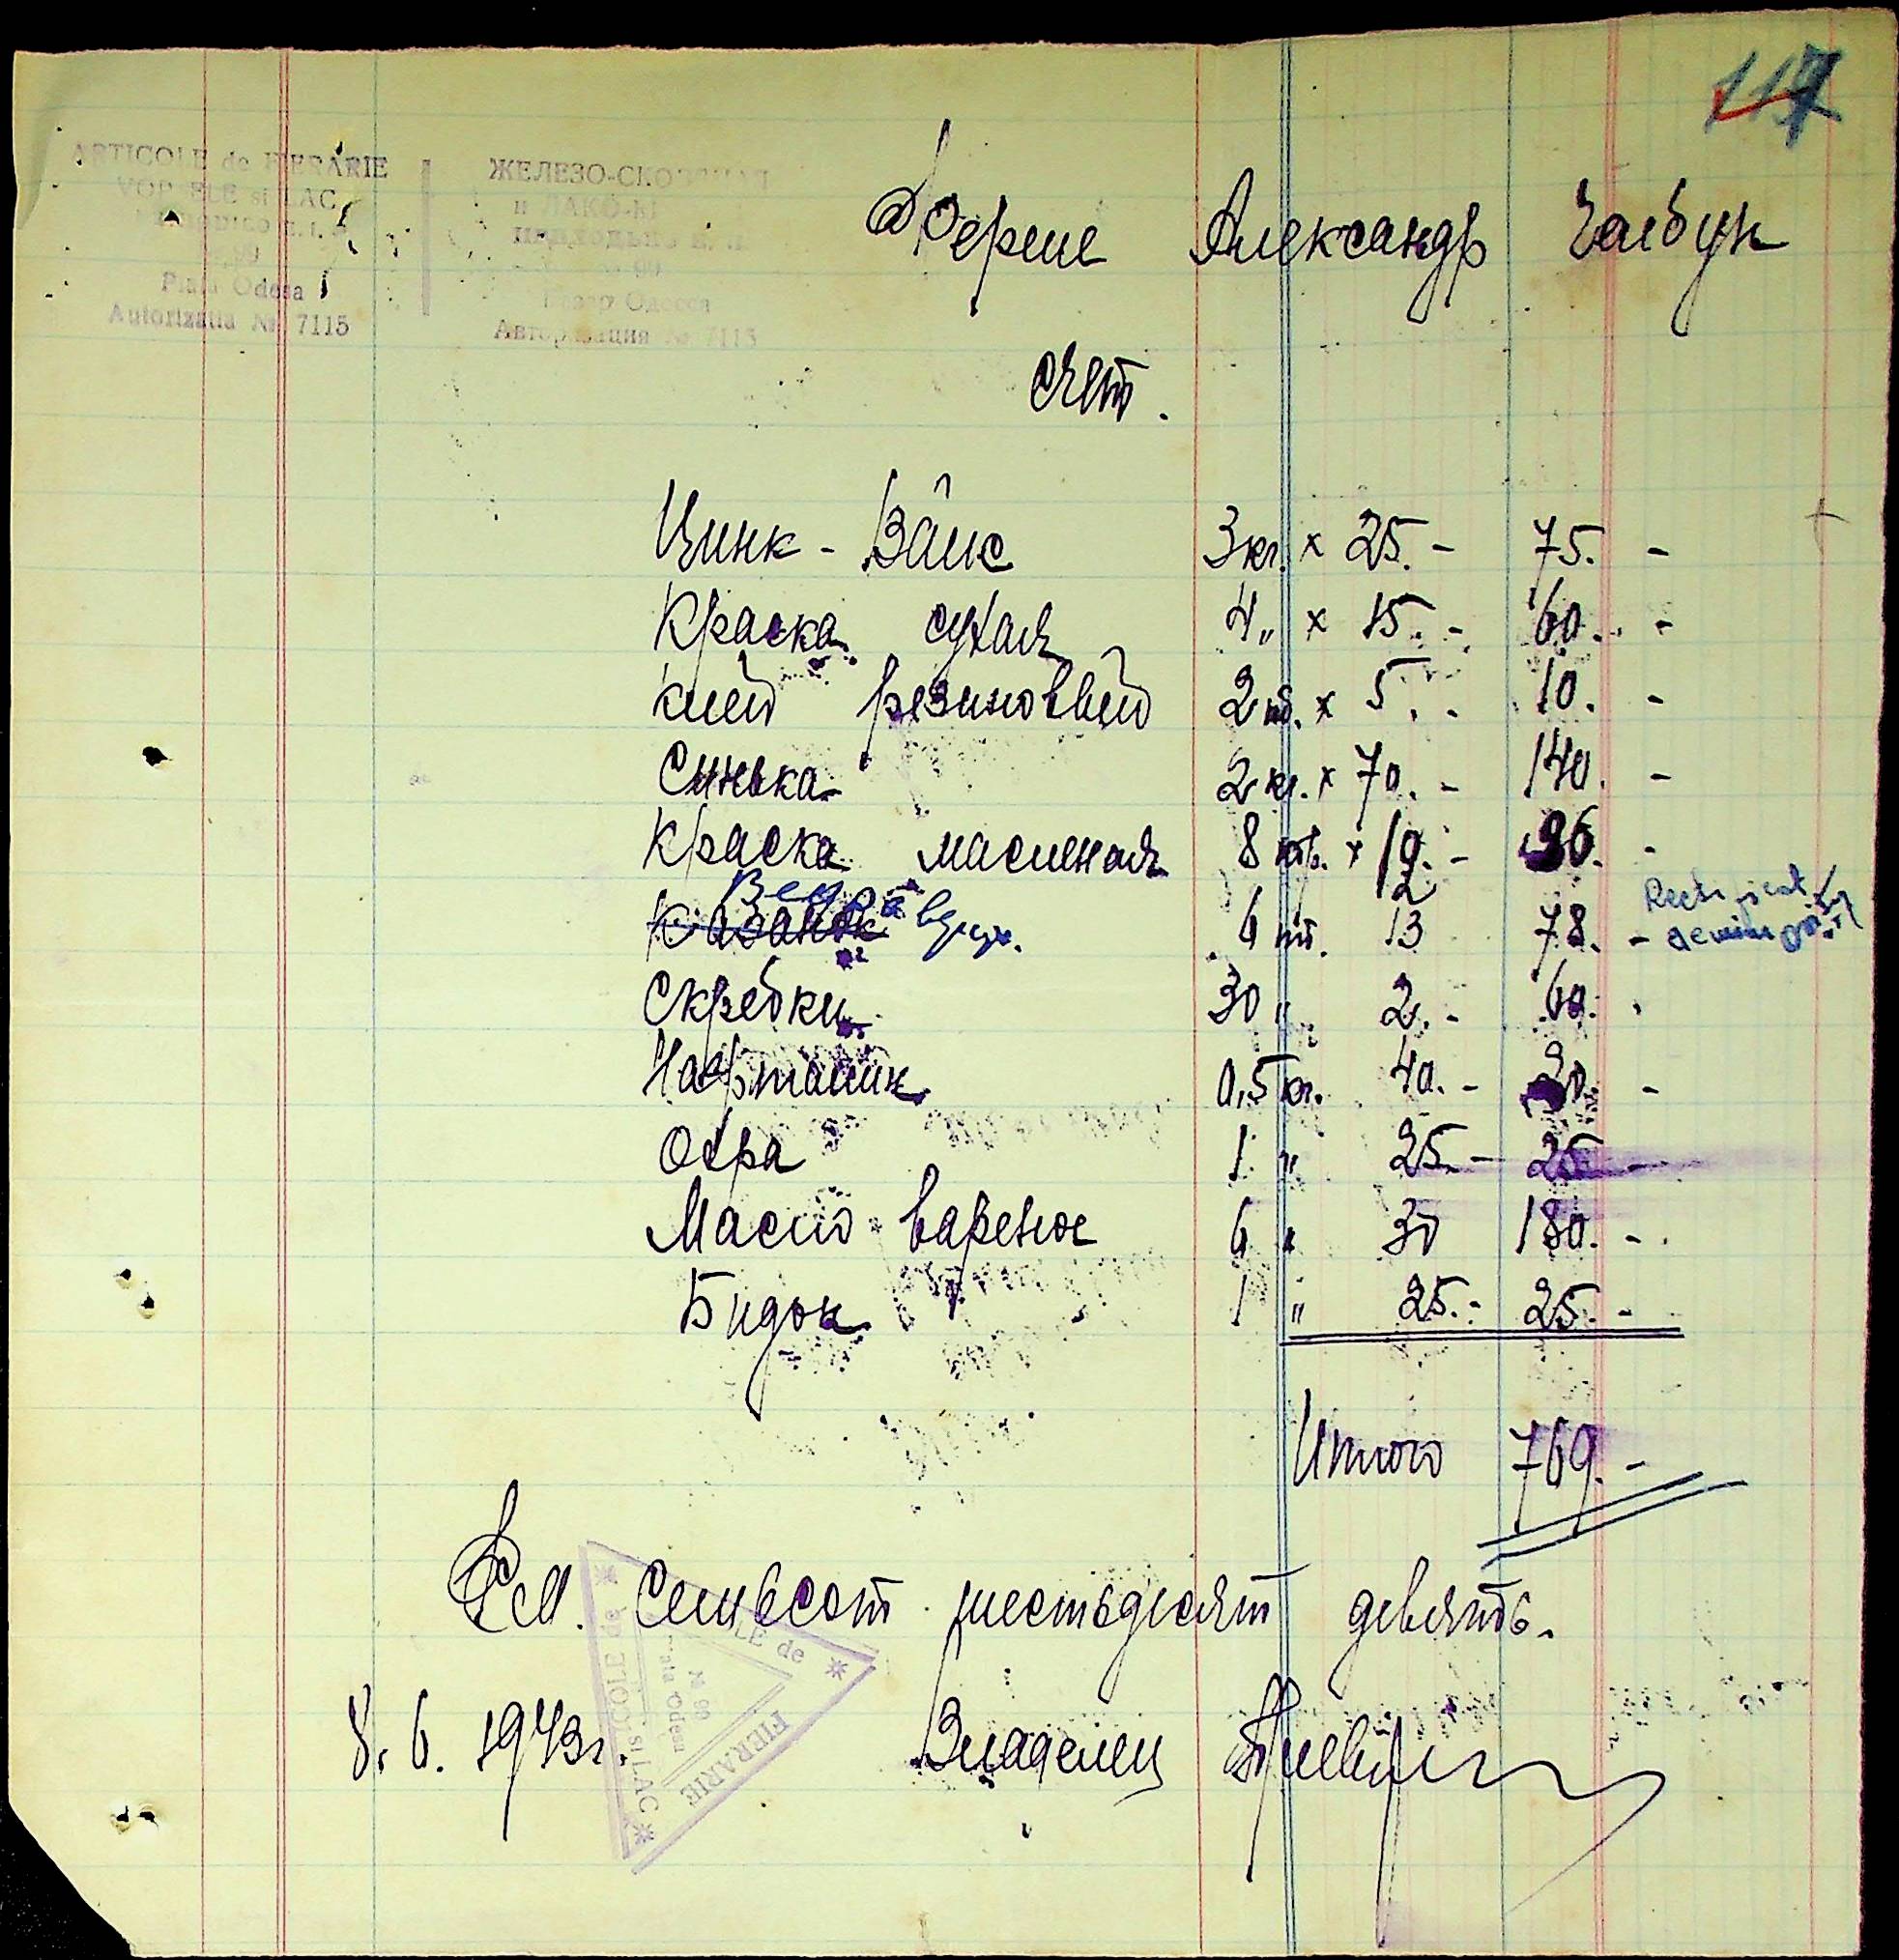 117
ARTICOLE de FIERARIE
VOPSELE si LAC
99
Piata Odesa
Autorizatia № 7115
ЖЕЛЕЗО-СКОБЯНАЯ
и ЛАКО-
99
Базар Одесса
Авторизация № 7115
Ферме Александр
Счет.
Цинк - Вайс 3 кг. × 25. - 75. -
Краска сухая 4 „ × 15. - 60. -
Клей резиновый 2 шт. × 5. - 10. -
Синька 2 кг. × 70. - 140. -
Краска масленая 8 × 12. - 96. -
Ведра
Казанок 6 шт. 13 78. -
Скребки 30 „ 2. - 60.
0,5 кг. 40. - 20. -
Охра 1 „ 25. - 25 -
Масло вареное 6 „ 30 180. -
Бидон 1 „ 25. - 25. -
Итого 769. -
Семьсот шестьдесят девять.
ARTICOLE de FIERARIE
si LAC
№ 99
Piata Odesa
8. 6. 1943 г. Владелец